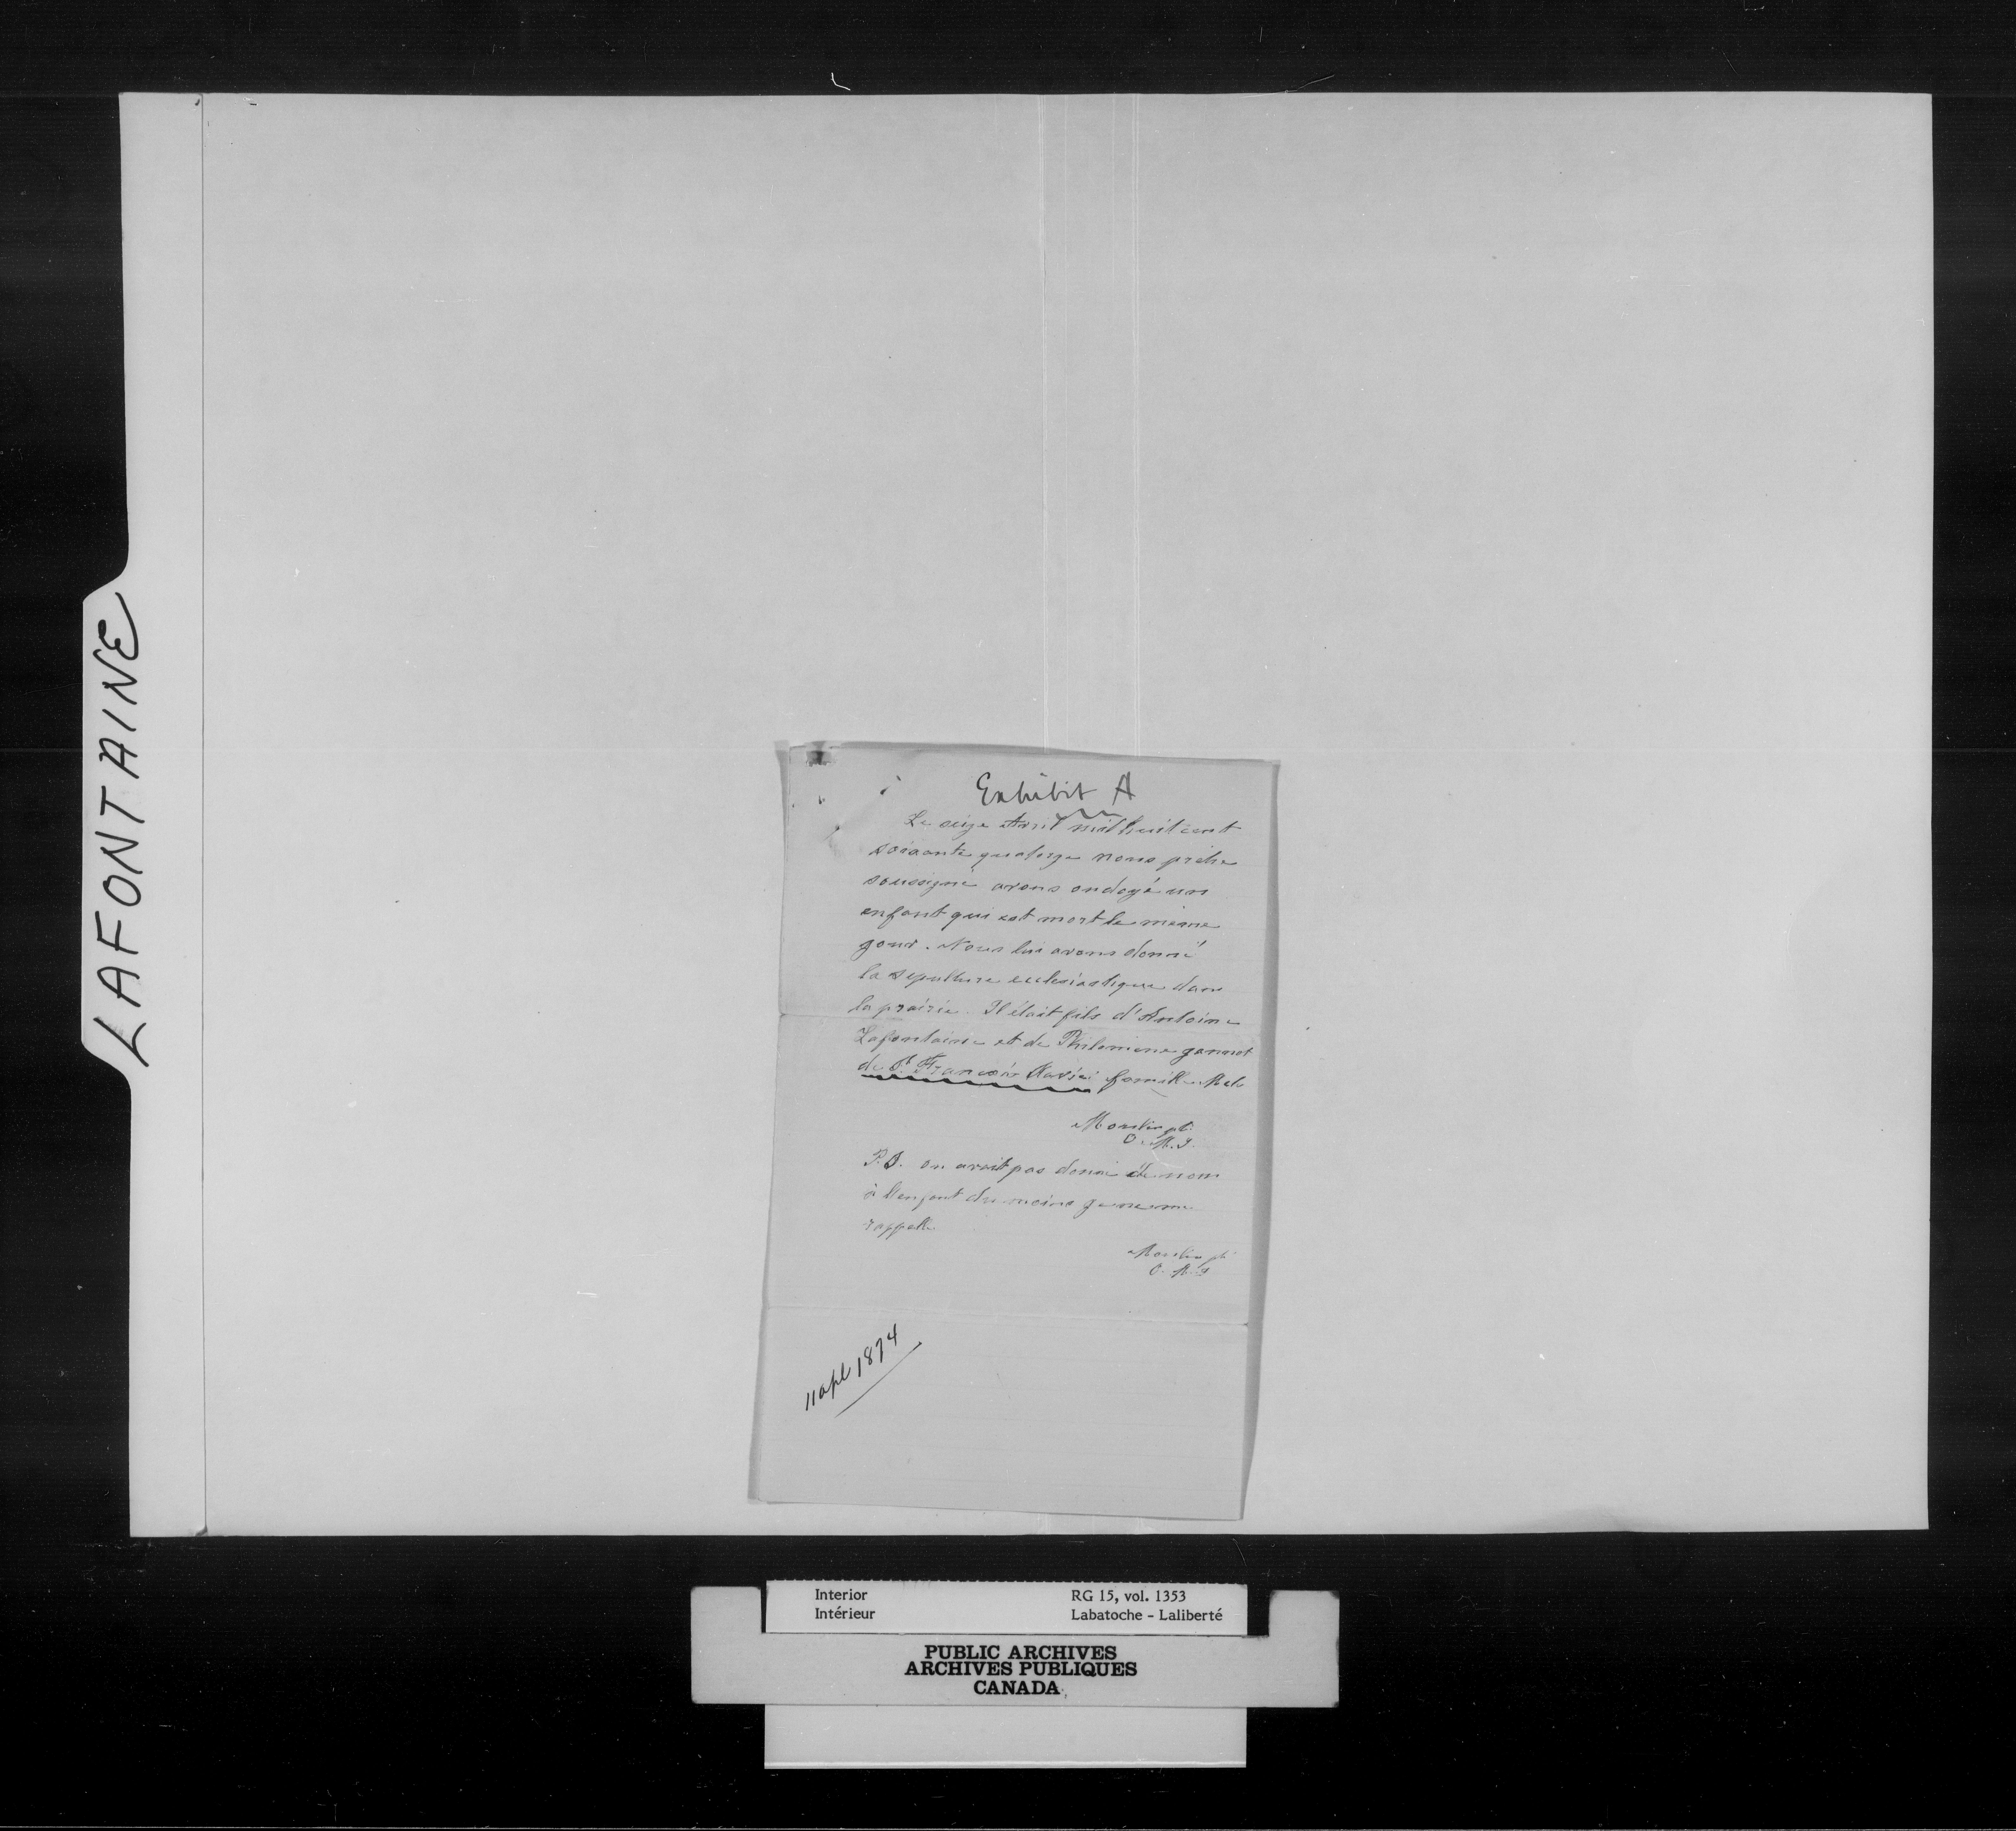 LAFONTAINE
Exhibit A
Le seize Avril mil huit cent
soixante quatorze nous prêtre
soussigné avons ondoyé un
enfant qui est mort le même
jour. Nous lui avons donné
la sepulture ecclesiastique dans
la prairie. Il était fils d'Antoine
Lafontaine et de Philomene
de St. François Xavier famille
Moulin pt.
O. M. I.
P.S. on avait pas donné de nom
à l'enfant du moins je ne me
rappelle
Moulin pt.
O. M. I
11 apl 1874
Interior
Intérieur
RG 15, vol. 1353
Labatoche - Laliberté
PUBLIC ARCHIVES
ARCHIVES PUBLIQUES
CANADA